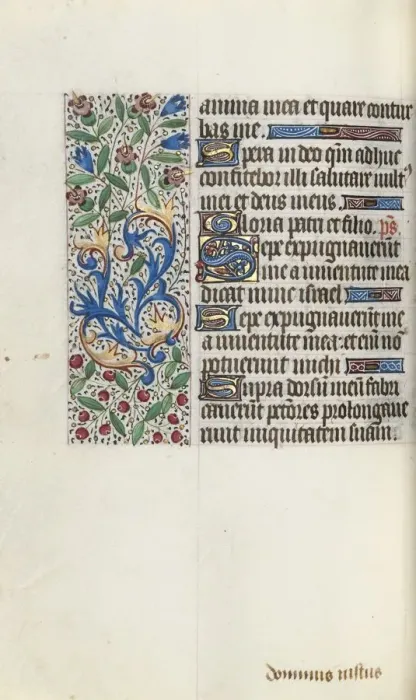 anima mea et quare contur
bas me.
Spera in deo qm̄ adhuc
confitebor illi salutare vult⁹
mei et deus meus. p̄s
Gloria patri et filio.
Sepe expugnauerūt
me a iuuentute mea
dicat nunc israel
Sepe expugnauerūt me
a iuuentute mea. et em̄ nō
potuerunt michi
Supra dorsū meū fabri
cauerūt pctōres prolongaue
runt iniquitatem suam.
dominus iustus